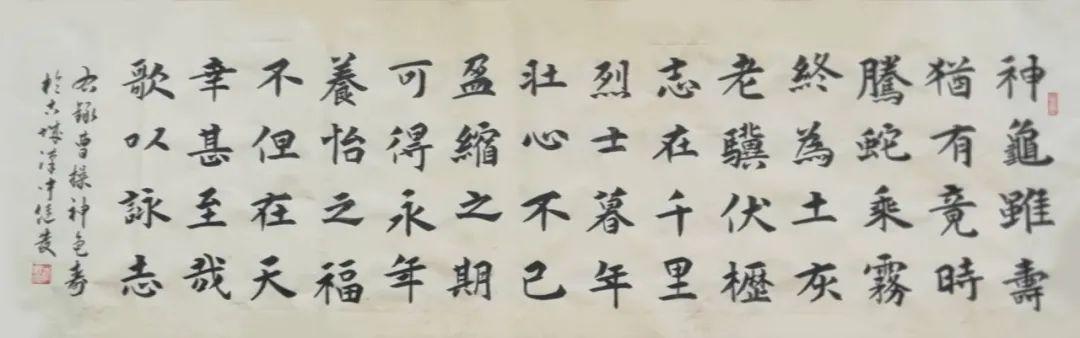 神龜雖壽
猶有竟時
騰蛇乘霧
終為土灰
老驥伏櫪
志在千里
烈士暮年
壯心不已
盈縮之期
可得永年
養怡之福
不但在天
幸甚至哉
歌以詠志
右錄曹操神龟壽
於古城漢中